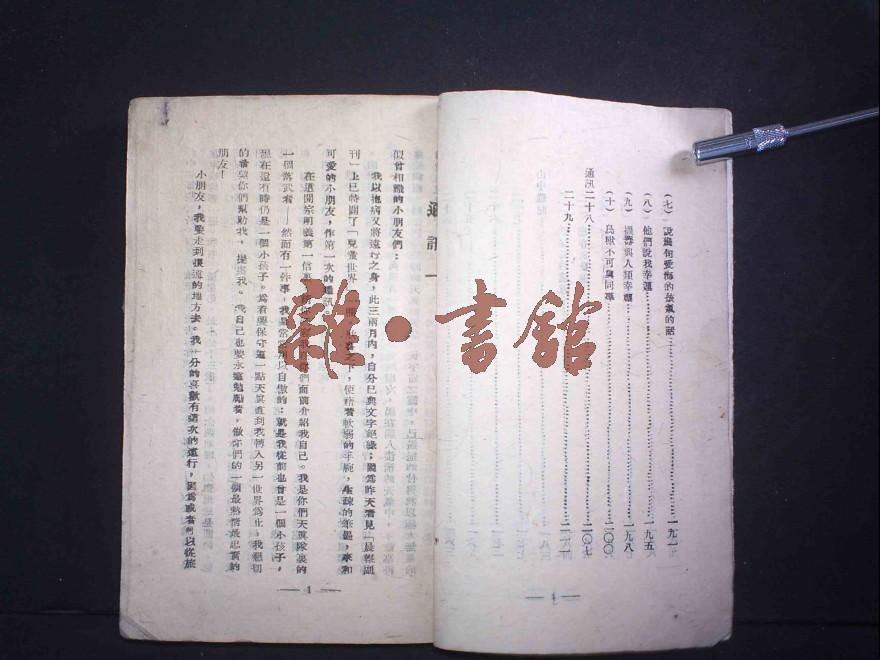 (七) 說幾句愛海的孩氣的話……一九一
(八) 他們說我幸運……一九五
(九) 機器與人類幸福……一九八
(十) 鳥獸不可與同羣……二〇〇
通訊二十八……二〇七
二十九……二一一
— 4 —
通訊一
似曾相識的小朋友們：
我以抱病又將遠行之身，此三兩月內，自分已與文字絕緣；因為昨天看見「晨報副
刊」上已特闢了「兒童世界」一欄，欣喜之下，便藉着軟弱的手腕，生疎的筆墨，來和
可愛的小朋友，作第一次的通訊。
在這開宗明義第一信裏，請你們容我在你們面前介紹我自己。我是你們天真隊裏的
一個落伍者——然而有一件事，我是常常用以自傲的：就是我從前也曾是一個小孩子，
現在還有時仍是一個小孩子。為着要保守這一點天真直到我轉入另一世界為止，我懇切
的希望你們幫助我，提攜我。我自己也要永遠勉勵着，做你們的一個最熱情最忠實的
朋友！
小朋友，我要走到很遠的地方去。我十分的喜歡有這次的遠行，因為或者可以從旅
— 1 —
雜·書館